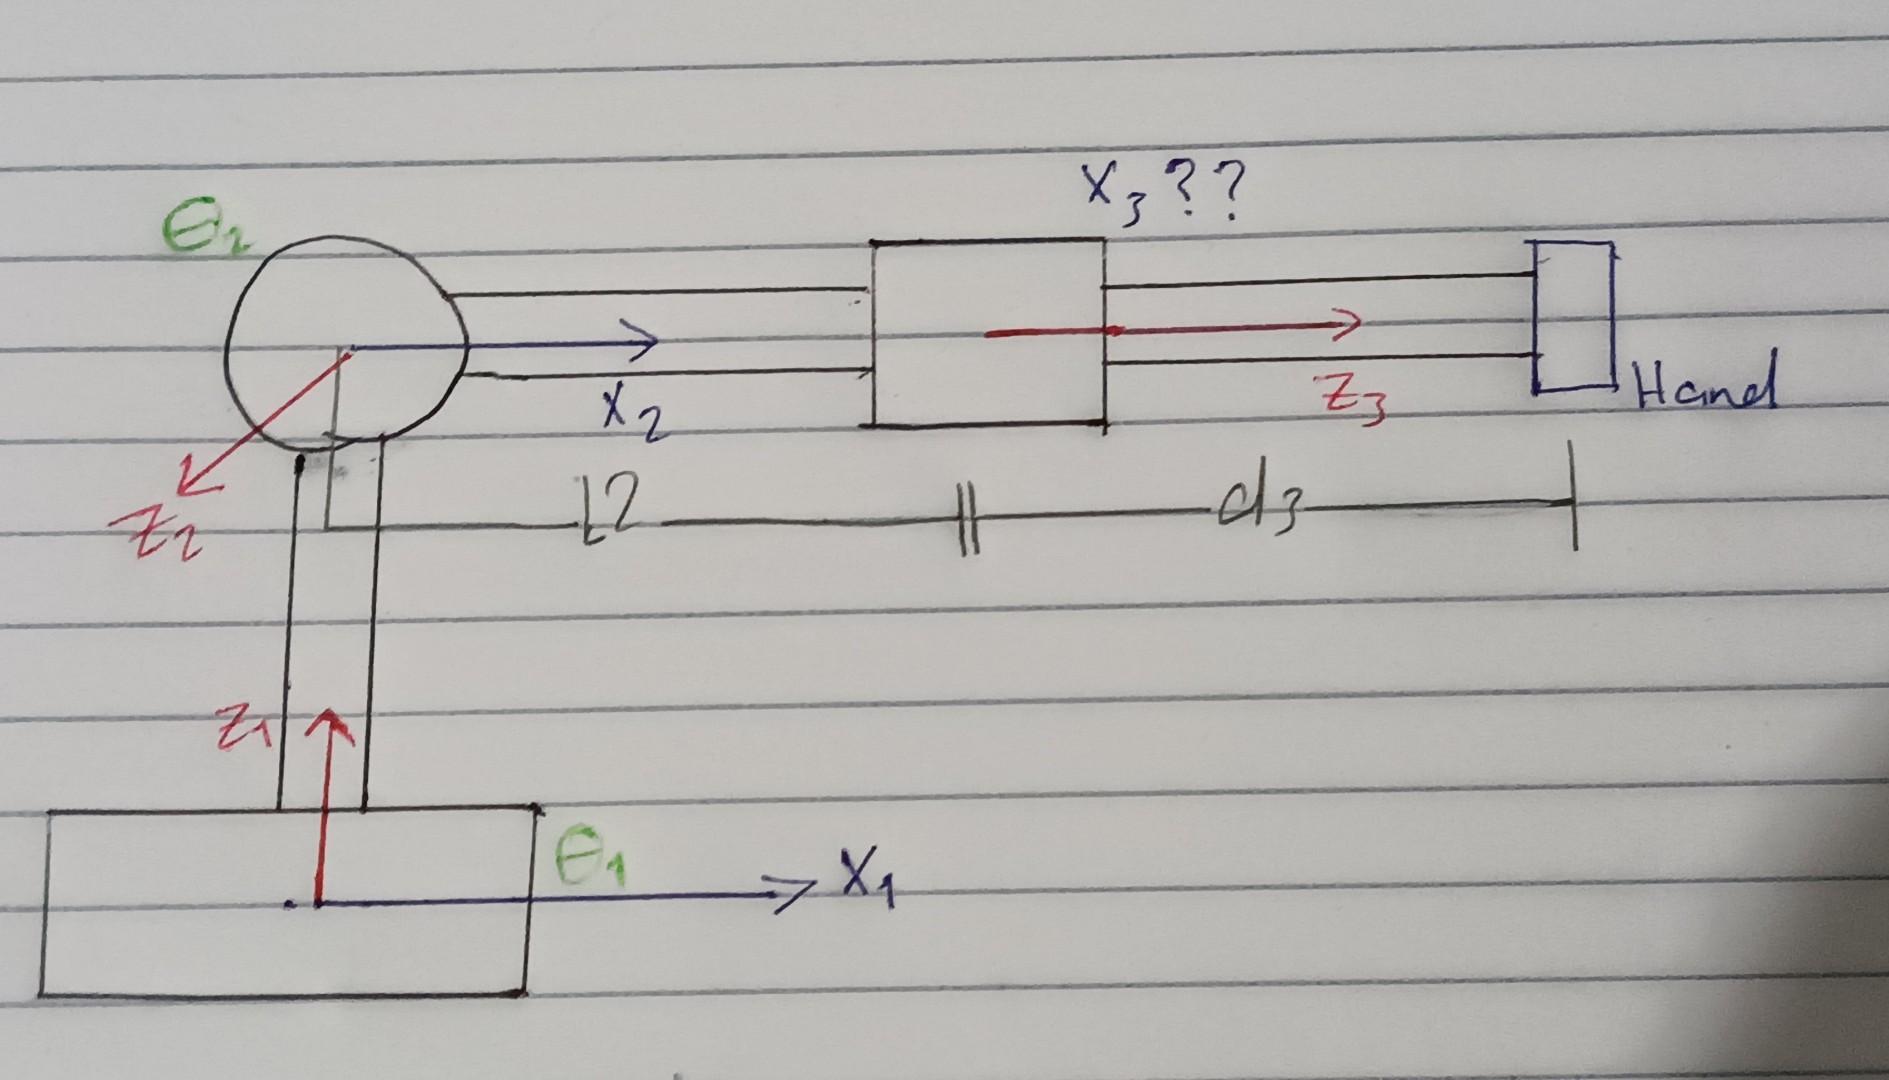 X3??
θ2
X2
Z3
Hand
Z2
L2
d3
Z1
θ1
X1